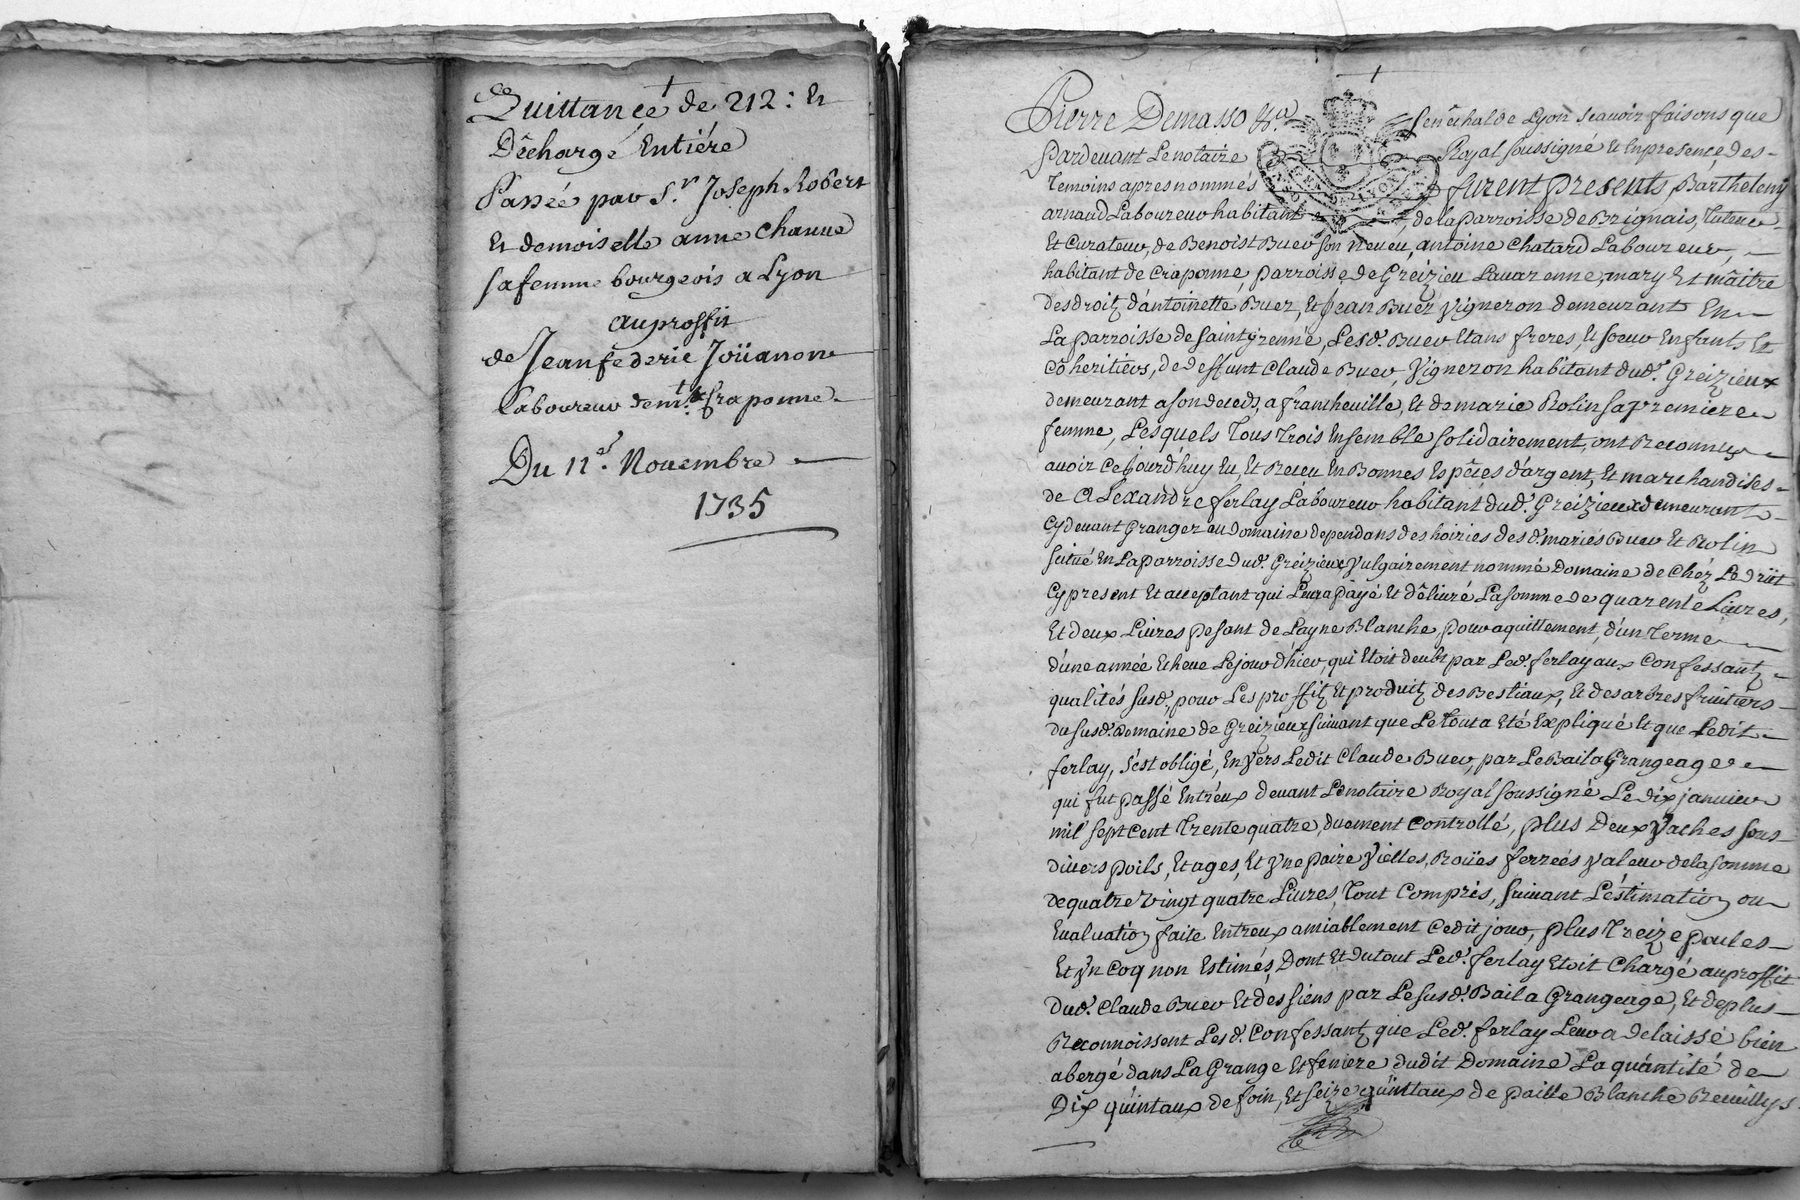 Quittance de 212: Et
Déchargé Entiére
Passée par Sr. Joseph Robert
Et demoiselle anne Chanue
sa femme bourgeois a Lyon
au proffit
de Jean féderic Joüanon
Laboureur demt. a Craponne
Du 11e. Novembre
1735
Pierre Demasso &a. Senéchal de Lyon scavoir faisons que
Pardevant Le notaire Royal soussigné Et En presence des
Temoins apres nommés furent presents Barthelemy
arnaud Laboureur habitant de la parroisse de Brignais, Tuteur
Et Curateur, de Benoist Buer son neveu, antoine Chatard Laboureur,
habitant de Craponne, parroisse de Greizieu Lavarenne, mary Et maître
des droitz d'antoinette Buer, Et Jean Buer Vigneron demeurant En
La parroisse de Saint Genne, Lesd. Buer Etans freres, Et soeur Enfants Et
Cohéritiers, de deffunt Claude Buer, Vigneron habitant dud. Greizieux
demeurant a son deced, a francheville, Et de marie Rolin sa premiere
femme, Lesquels Tous Trois Ensemble solidairement, ont Reconnu
avoir Cejourd'huy Eu, Et Receu En Bonnes Espéces d'argent, Et marchandises
de Alexandre ferlay Laboureur habitant dud. Greizieux demeurant
Cy devant Granger au Domaine dependans des hoiries des d. mariés Buer Et Rolin
situé En La parroisse dud. Greizieux Vulgairement nommé Domaine de Chéz Le driit
Cy present Et acceptant qui Leur a payé Et déliuré La somme de quarente Liures,
Et deux Liures pesant de Layne Blanche, pour aquittement, d'un Terme
d'une année Echeue Le jour d'hier, qui Etoit deubt par Led. ferlay aux Confessantz
qualités susd. pour Les proffitz Et produitz des Bestiaux, Et des arbres fruitiers
du susd. Domaine de Greizieux suivant que Le Tout a Eté Expliqué Et que Ledit
ferlay, s'est obligé, Envers Ledit Claude Buer, par Le Bail a Grangeage
qui fut passé Entr'eux devant Le notaire Royal soussigné Le dix janvier
mil sept cent Trente quatre, duement Controllé, plus Deux Vaches sous
divers poils, Et ages, Et Vne paire Vielles Roües ferreés valeur de la somme
de quatre Vingt quatre Liures, Tout Comprés, suivant L'éstimation ou
Evaluation faite Entreux amiablement Cedit jour, plus Treize poules
Et Vn Coq non Estimés, Dont Et du tout Led. ferlay Etoit Chargé au proffit
dud. Claude Buer Et des siens par Le susd. Bail a Grangeage, Et de plus
Reconnoissent Lesd. Confessantz que Led. ferlay Leur a delaissé bien
abergé dans La Grange Et feniere dudit Domaine La quantité de
Dix quintaux de foin, Et seize quintaux de paille Blanche Recuillys